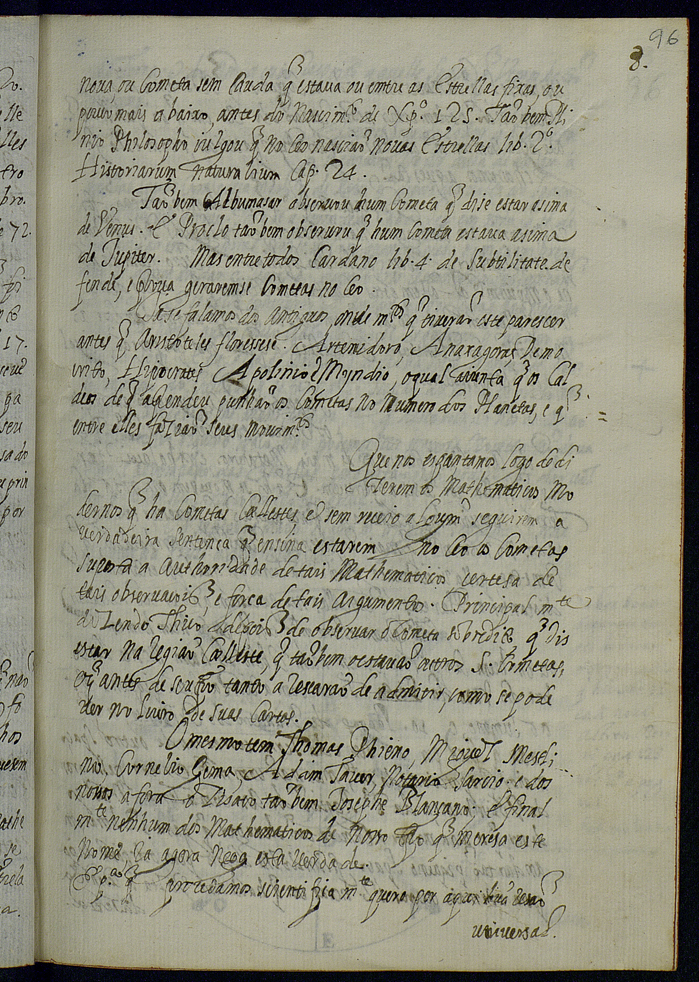 96
8.
noua ou Cometa sem Cauda q̃ estaua ou entre as Estrellas fixas, ou
pouco mais abaixo, antes do Nascim.to de Xp.o 125. Tãobem Pli
nio Philosopho iulgou q̃ no Ceo nasciaõ nouas Estrellas lib. 2.o
Historiarum naturalium Cap. 24.
Tãobem Albumasar obseruou hum Cometa q̃ dise estar asima
de Venus. E Proclo taõbem obseruou q̃ hum Cometa estaua asima
de Jupiter. Mas entre todos Cardano lib. 4. de Subtilitate de
fende, e proua geraremse Cometas no Ceo.
Ja se falamos dos Antigos, onde m.tos q̃ tiueraõ este parescer
antes q̃ Aristoteles florescese. Artemidoro, Anaxagoras, Demo
crito, Hipocrates, Apolinio Myndio, o qual aiunta q̃ os Cal
deos de q̃ aprendeu punhaõ os Cometas no numero dos Planetas, e q̃
entre elles faziaõ seus mouim.tos
Que nos espantamos logo de di
zerem os Mathematicos Mo
dernos q̃ ha Cometas Cælestes, e sem receio algum seguirem a
verdadeira sentença q̃ ensina estarem no Ceo os Cometas
suposta a Authoridade de tais Mathematicos certesa de
tais obseruacois, e força de tais Argumentos. Principalm.te
dizendo Thico depois de obseruar o Cometa sobredito q̃ dis
estar na Regiaõ Cælleste q̃ taõbem o estauaõ outros 5. Cometas,
o q̃ antes de seu tanto arresearaõ de admitir, como se pode
uer no Liuro de suas Cartas.
O mesmo tem Thomas Phieno, Miguel Mestli
no, Cornelio Gema, Adam Tauer, Notario Sarcio e dos
nouos afora taõbem Josephe Blancano; E final
m.te nenhum dos Mathematicos de Nosso Tp.o q̃ meresa este
Nome ja agora nega esta uerdade.
E p.a q̃ procedamos scientificam.te quero por aqui huã resaõ
uniuersal.